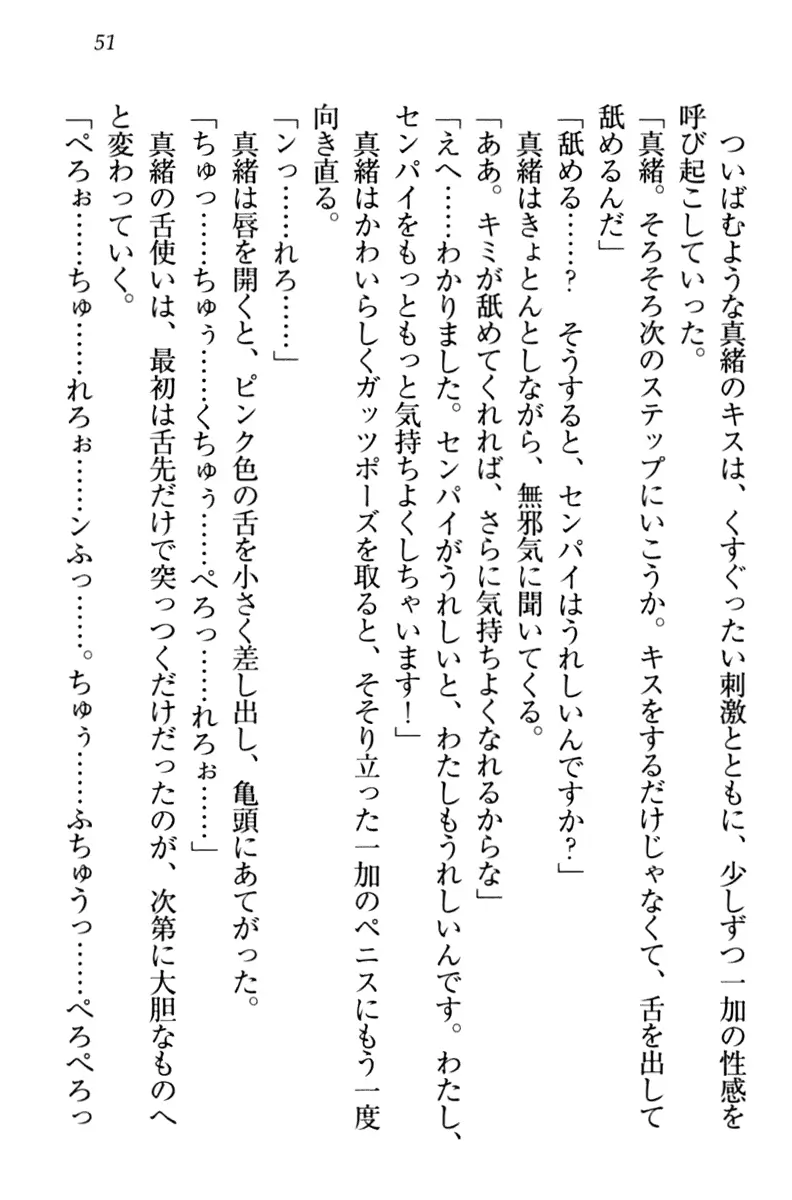 51
ついばむような真緒のキスは、くすぐったい刺激とともに、少しずつ一加の性感を
呼び起こしていった。
「真緒。そろそろ次のステップにいこうか。キスをするだけじゃなくて、舌を出して
舐めるんだ」
「舐める……?　そうすると、センパイはうれしいんですか?」
真緒はきょとんとしながら、無邪気に聞いてくる。
「ああ。キミが舐めてくれれば、さらに気持ちよくなれるからな」
「えへ……わかりました。センパイがうれしいと、わたしもうれしいんです。わたし、
センパイをもっともっと気持ちよくしちゃいます!」
真緒はかわいらしくガッツポーズを取ると、そそり立った一加のペニスにもう一度
向き直る。
「ンっ……れろ……」
真緒は唇を開くと、ピンク色の舌を小さく差し出し、亀頭にあてがった。
「ちゅっ……ちゅぅ……くちゅぅ……ぺろっ……れろぉ……」
真緒の舌使いは、最初は舌先だけで突っつくだけだったのが、次第に大胆なものへ
と変わっていく。
「ぺろぉ……ちゅ……れろぉ……ンふっ……。ちゅぅ……ふちゅうっ……ぺろぺろっ